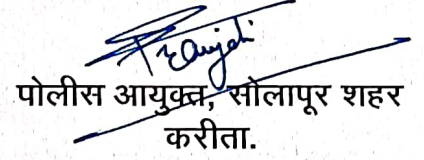 पोलीस आयुक्त, सोलापूर शहर
करीता.